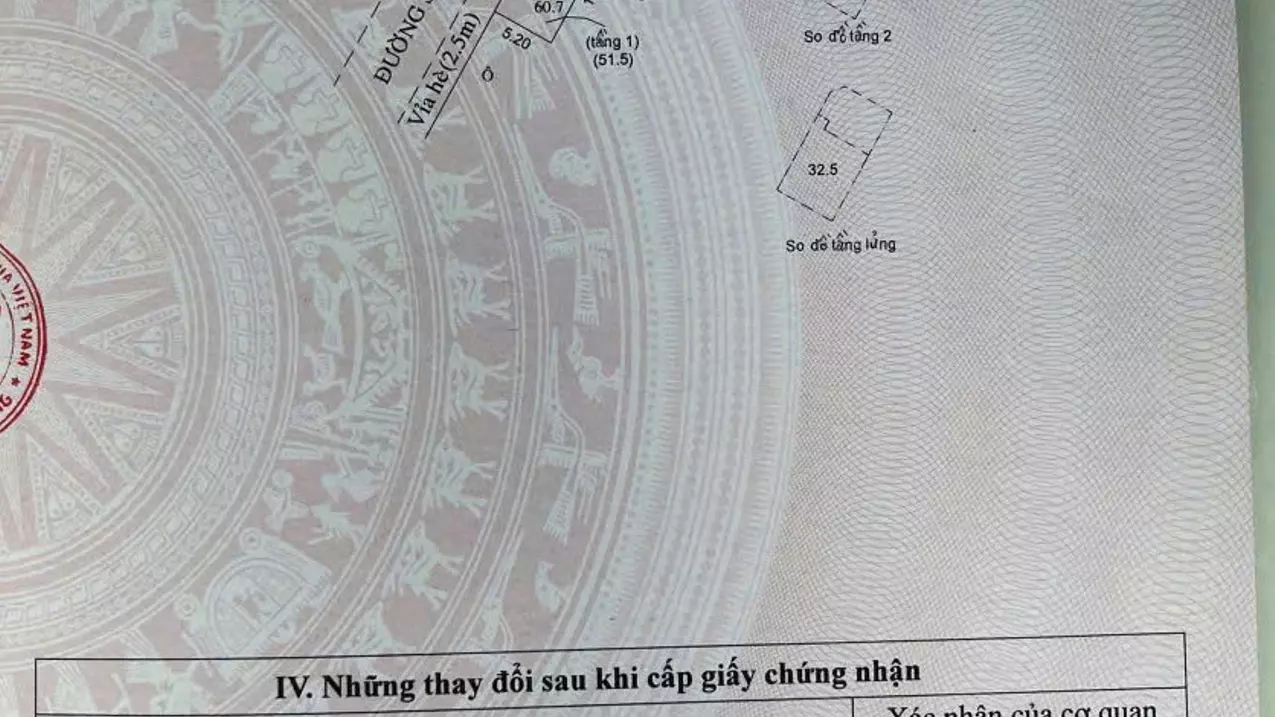 60.7
ĐƯỜNG
Vỉa hè(2.5m)
5.20
Ô
(tầng 1)
(51.5)
Sơ đồ tầng 2
32.5
Sơ đồ tầng lửng
VIỆT NAM ★
IV. Những thay đổi sau khi cấp giấy chứng nhận
Xác nhận của cơ quan